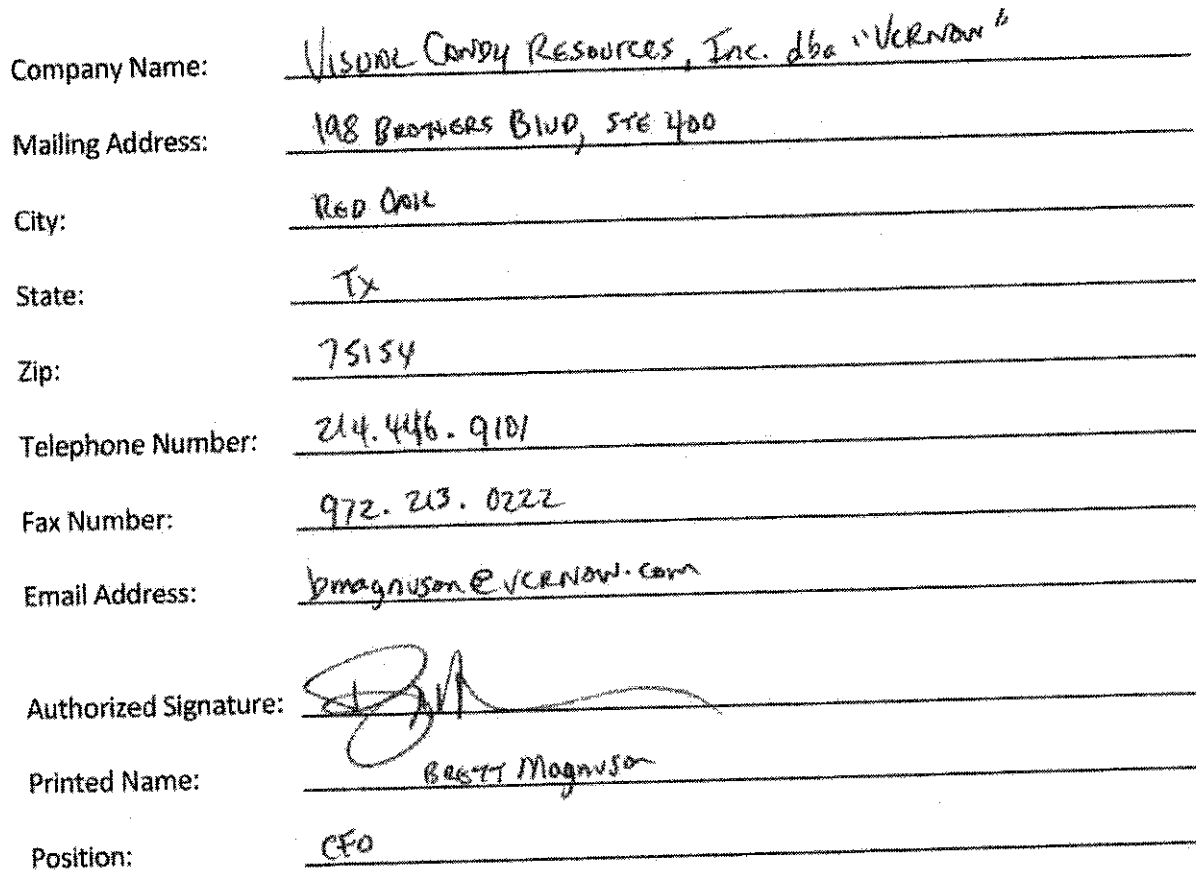 Company Name: Visual Candy Resources, Inc. dba "VCRNow"
Mailing Address: 198 Brothers Blvd, STE 400
City: Red Oak
State: Tx
Zip: 75154
Telephone Number: 214.446.9101
Fax Number: 972.213.0222
Email Address: bmagnuson@vcrnow.com
Authorized Signature:
Printed Name: Brett Magnuson
Position: CFO